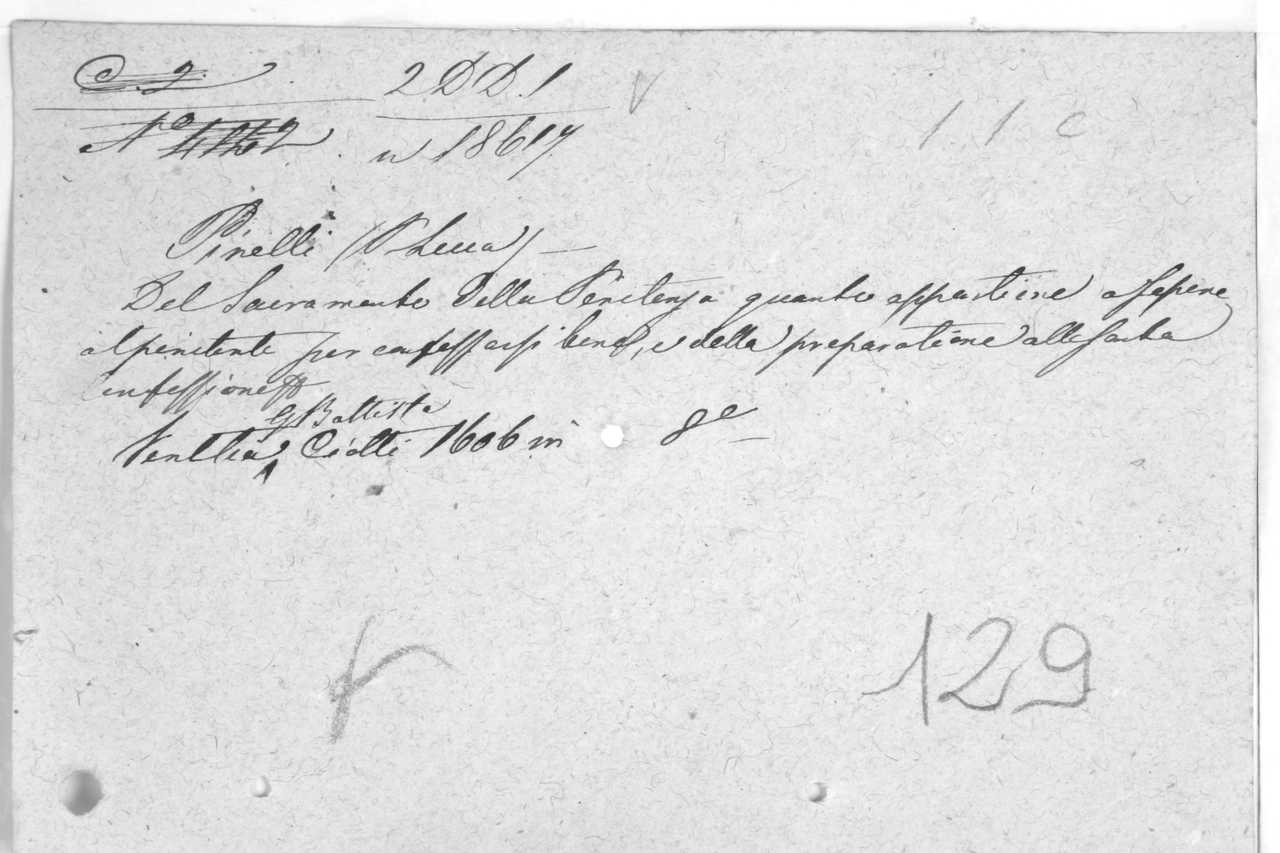 C. 2 2. D D. 1 1 1 c
Nº 4242 nº 18617.
Pinelli (P. Luca) —
Del Sacramento della Penitenza quanto appartiene a sapere
al penitente per confessarsi bene, e della preparatione alla santa
Confessione
G Battista
Venetia Ciotti 1606 in 8º —
129